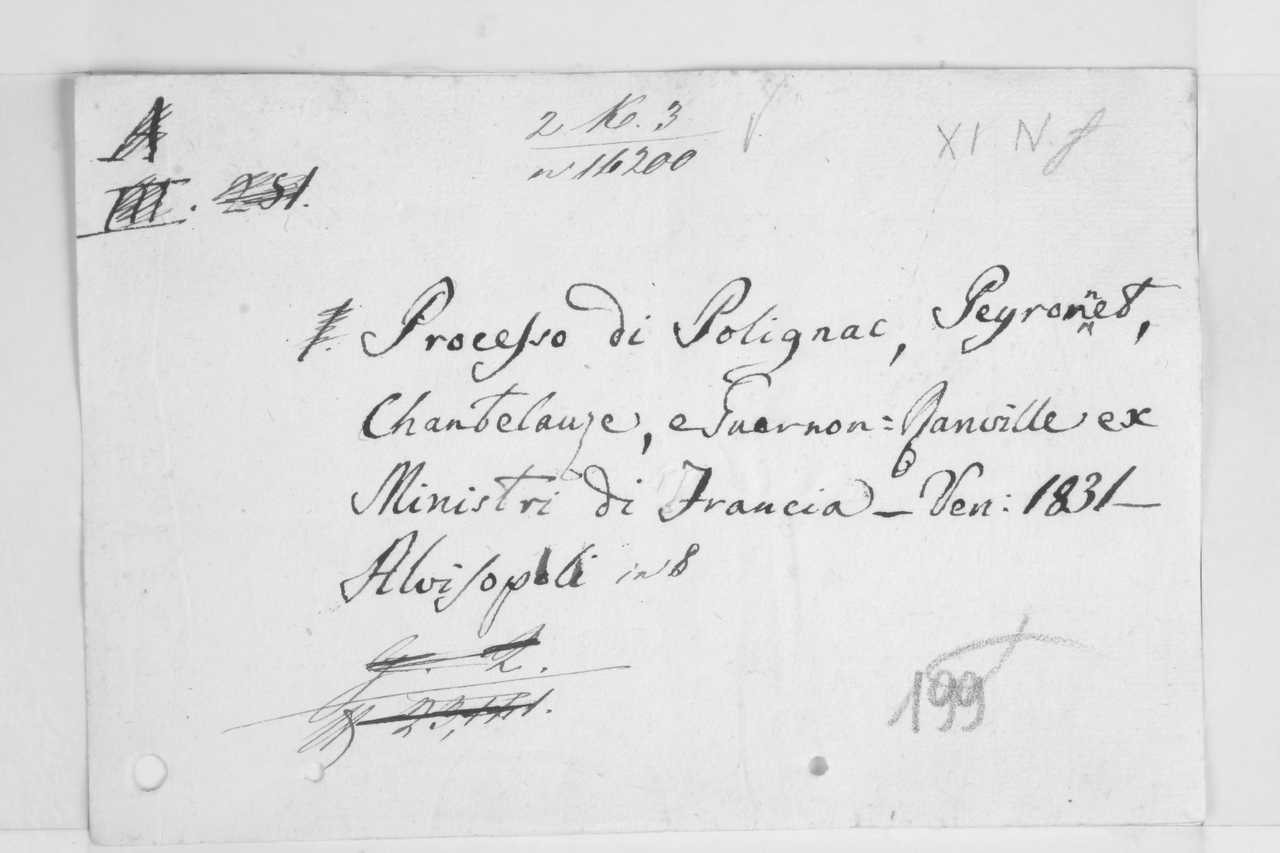 A
III. 251.
2 K. 3
n 16200
XI N. f
Processo di Polignac, Peyronnet,
Chantelauze, e Guernon=Ranville ex
Ministri di Francia – Ven: 1831 –
Alvisopoli in 8
2.
199